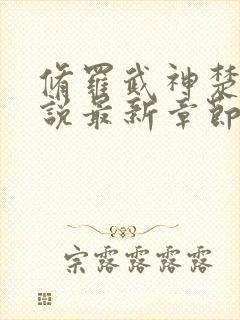 脩羅武神楚
說最新章節
宗露露露露